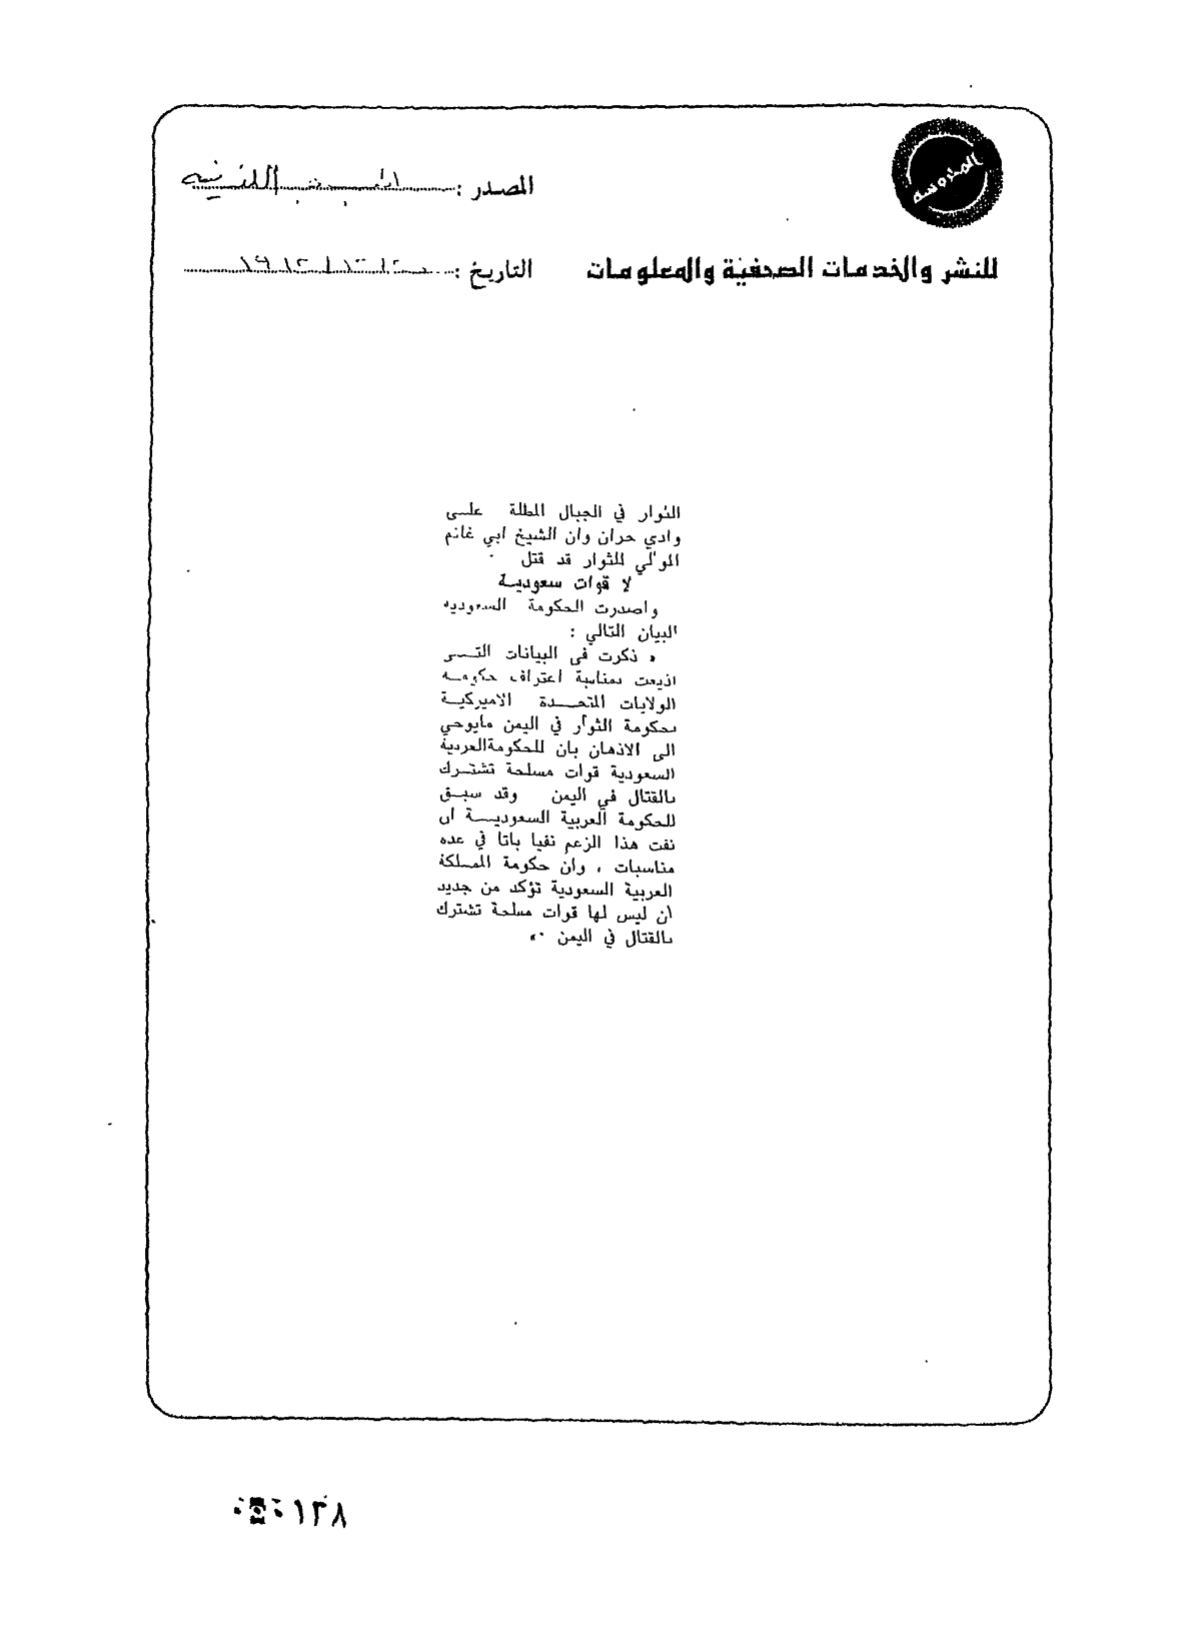 المحروسة
المصدر :
للنشر والخدمات الصحفية والمعلومات
التاريخ :
الثوار في الجبال المطلة على
وادي حران وان الشيخ ابي غانم
الموالي للثوار قد قتل ٠
لا قوات سعودية
واصدرت الحكومة السعودية
البيان التالي :
« ذكرت في البيانات التي
اذيعت بمناسبة اعتراف حكومة
الولايات المتحدة الاميركية
بحكومة الثوار في اليمن مايوحي
الى الاذهان بان للحكومةالعربية
السعودية قوات مسلحة تشترك
بالقتال في اليمن وقد سبق
للحكومة العربية السعودية ان
نفت هذا الزعم نفيا باتا في عدة
مناسبات ، وان حكومة المملكة
العربية السعودية تؤكد من جديد
ان ليس لها قوات مسلحة تشترك
بالقتال في اليمن ٠»
١٣٨